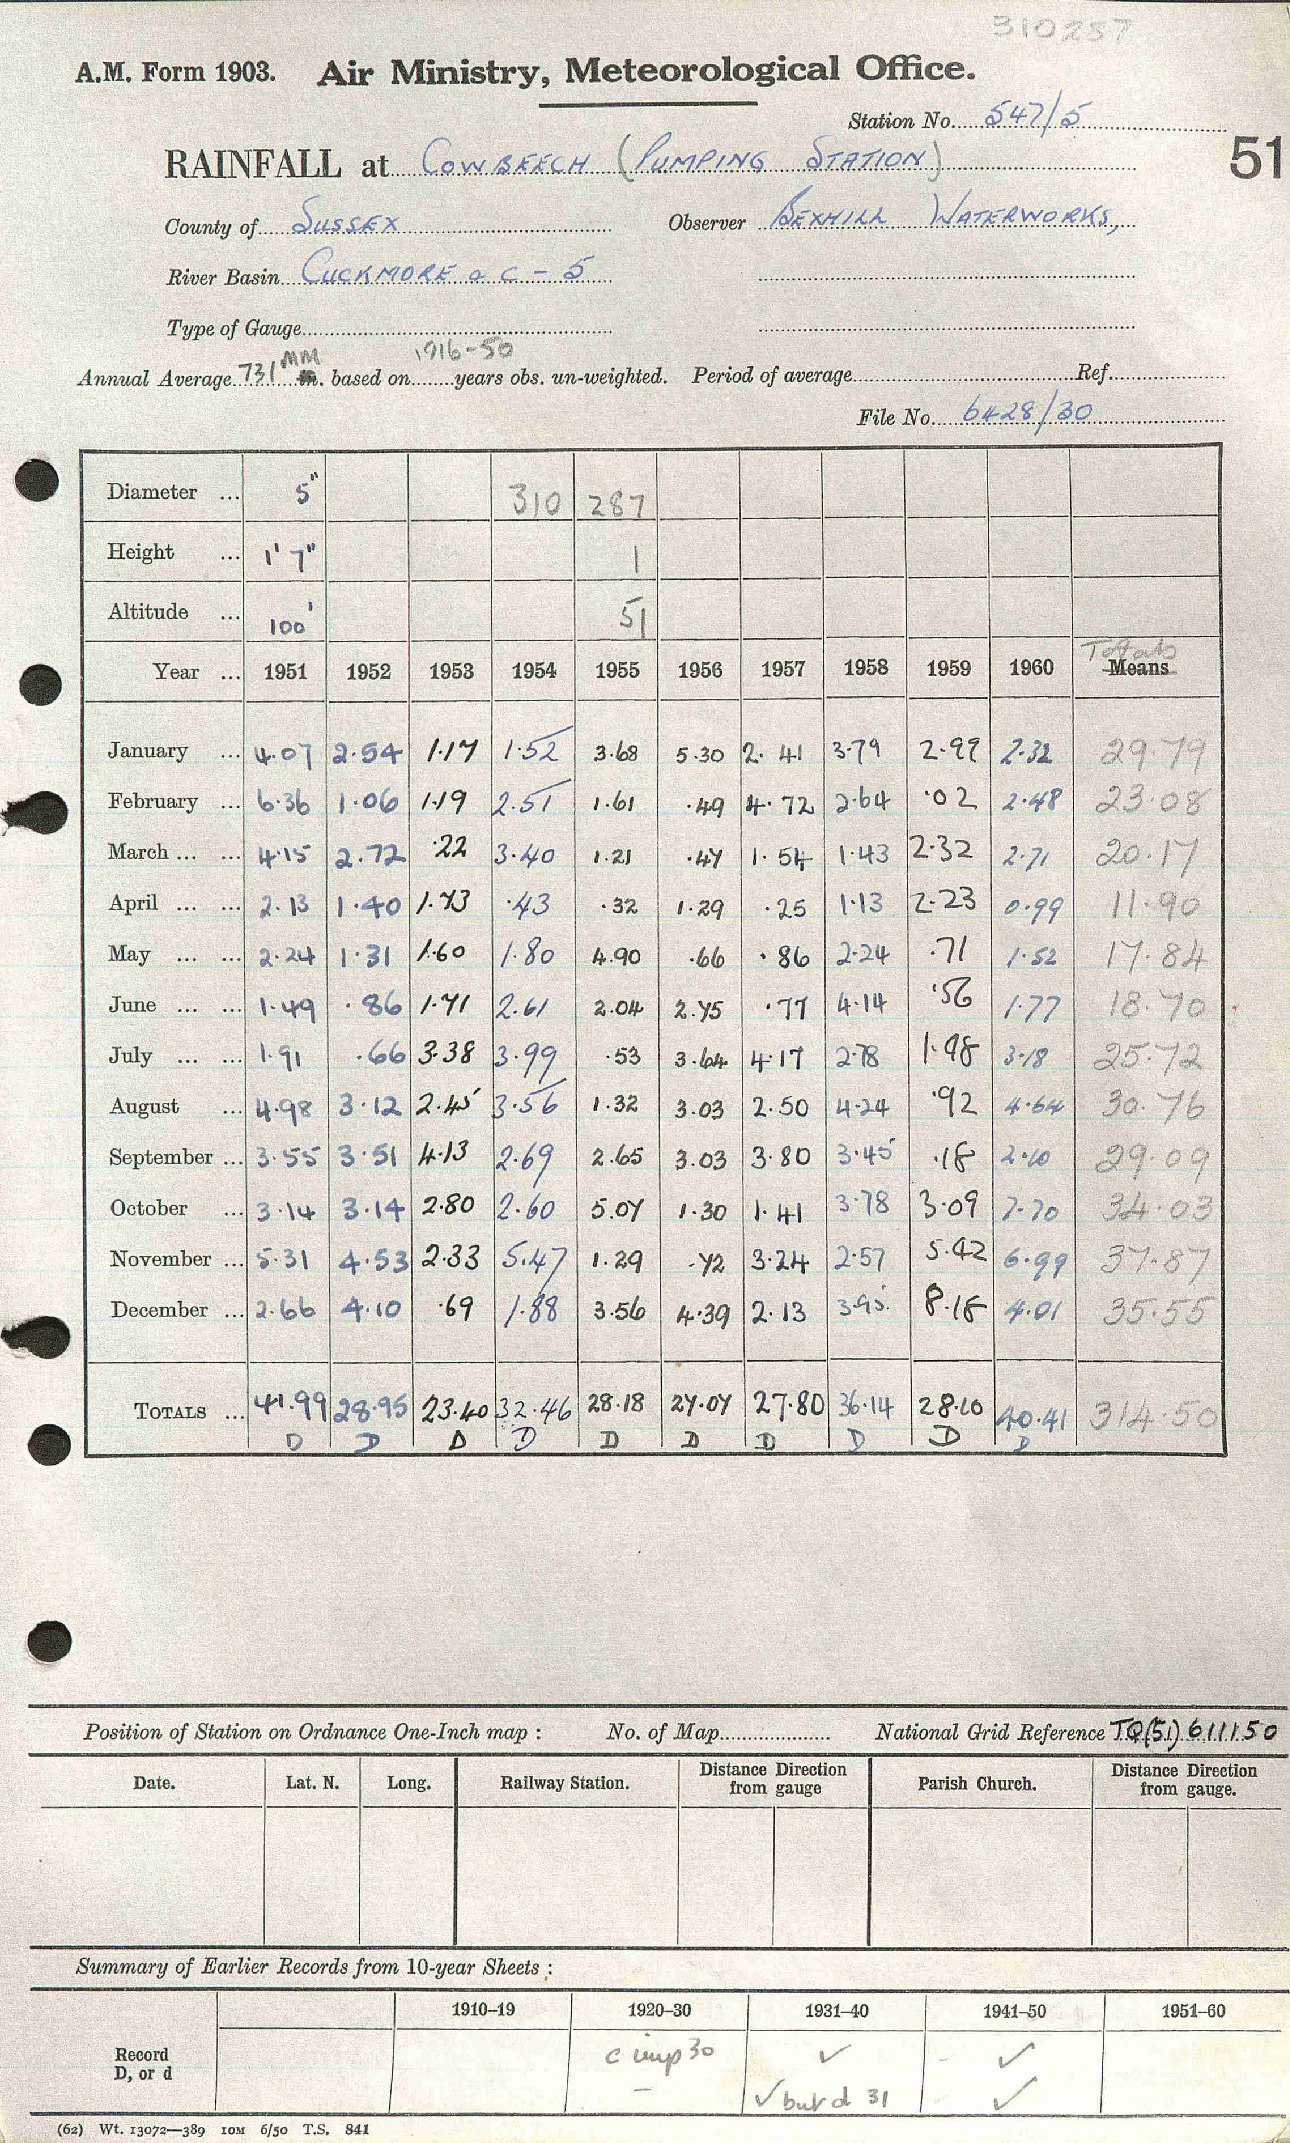 310287
A.M. Form 1903. Air Ministry, Meteorological Office.
Station No. 547/5
RAINFALL at COWBEECH (PUMPING STATION) 51
County of SUSSEX Observer BEXHILL WATERWORKS,
River Basin CUCKMORE a c - 5
Type of Gauge
1916-50
Annual Average 731 MM in. based on years obs. un-weighted. Period of average Ref.
File No. 6428/30
Diameter ... 5" 310 287
Height ... 1' 7" 1
Altitude ... 100' 51
Totals
Year ... 1951 1952 1953 1954 1955 1956 1957 1958 1959 1960 Means
January ... 4.07 2.54 1.17 1.52 3.68 5.30 2.41 3.79 2.99 2.32 29.79
February ... 6.36 1.06 1.19 2.51 1.61 .49 4.72 2.64 .02 2.48 23.08
March ... ... 4.15 2.72 .22 3.40 1.21 .47 1.54 1.43 2.32 2.71 20.17
April ... ... 2.13 1.40 1.73 .43 .32 1.29 .25 1.13 2.23 0.99 11.90
May ... ... 2.24 1.31 1.60 1.80 4.90 .66 .86 2.24 .71 1.52 17.84
June ... ... 1.49 .86 1.71 2.61 2.04 2.75 .77 4.14 .56 1.77 18.70
July ... ... 1.91 .66 3.38 3.99 .53 3.64 4.17 2.78 1.48 3.18 25.72
August ... 4.98 3.12 2.45 3.56 1.32 3.03 2.50 4.24 .92 4.64 30.76
September ... 3.55 3.51 4.13 2.69 2.65 3.03 3.80 3.45 .18 2.10 29.09
October ... 3.14 3.14 2.80 2.60 5.07 1.30 1.41 3.78 3.09 7.70 34.03
November ... 5.31 4.53 2.33 5.47 1.29 .72 3.24 2.57 5.42 6.99 37.87
December ... 2.66 4.10 .69 1.88 3.56 4.39 2.13 3.95 8.18 4.01 35.55
TOTALS ... 41.99 28.95 23.40 32.46 28.18 27.07 27.80 36.14 28.10 40.41 314.50
D D D D D D D D D D
Position of Station on Ordnance One-Inch map : No. of Map National Grid Reference TQ(51) 611150
Date. Lat. N. Long. Railway Station. Distance from Direction gauge Parish Church. Distance from Direction gauge.
Summary of Earlier Records from 10-year Sheets :
1910–19 1920–30 1931–40 1941–50 1951–60
Record c imp 30 ✓ ✓
D, or d – ✓ but d 31 ✓
(62) Wt. 13072—389 10M 6/50 T.S. 841